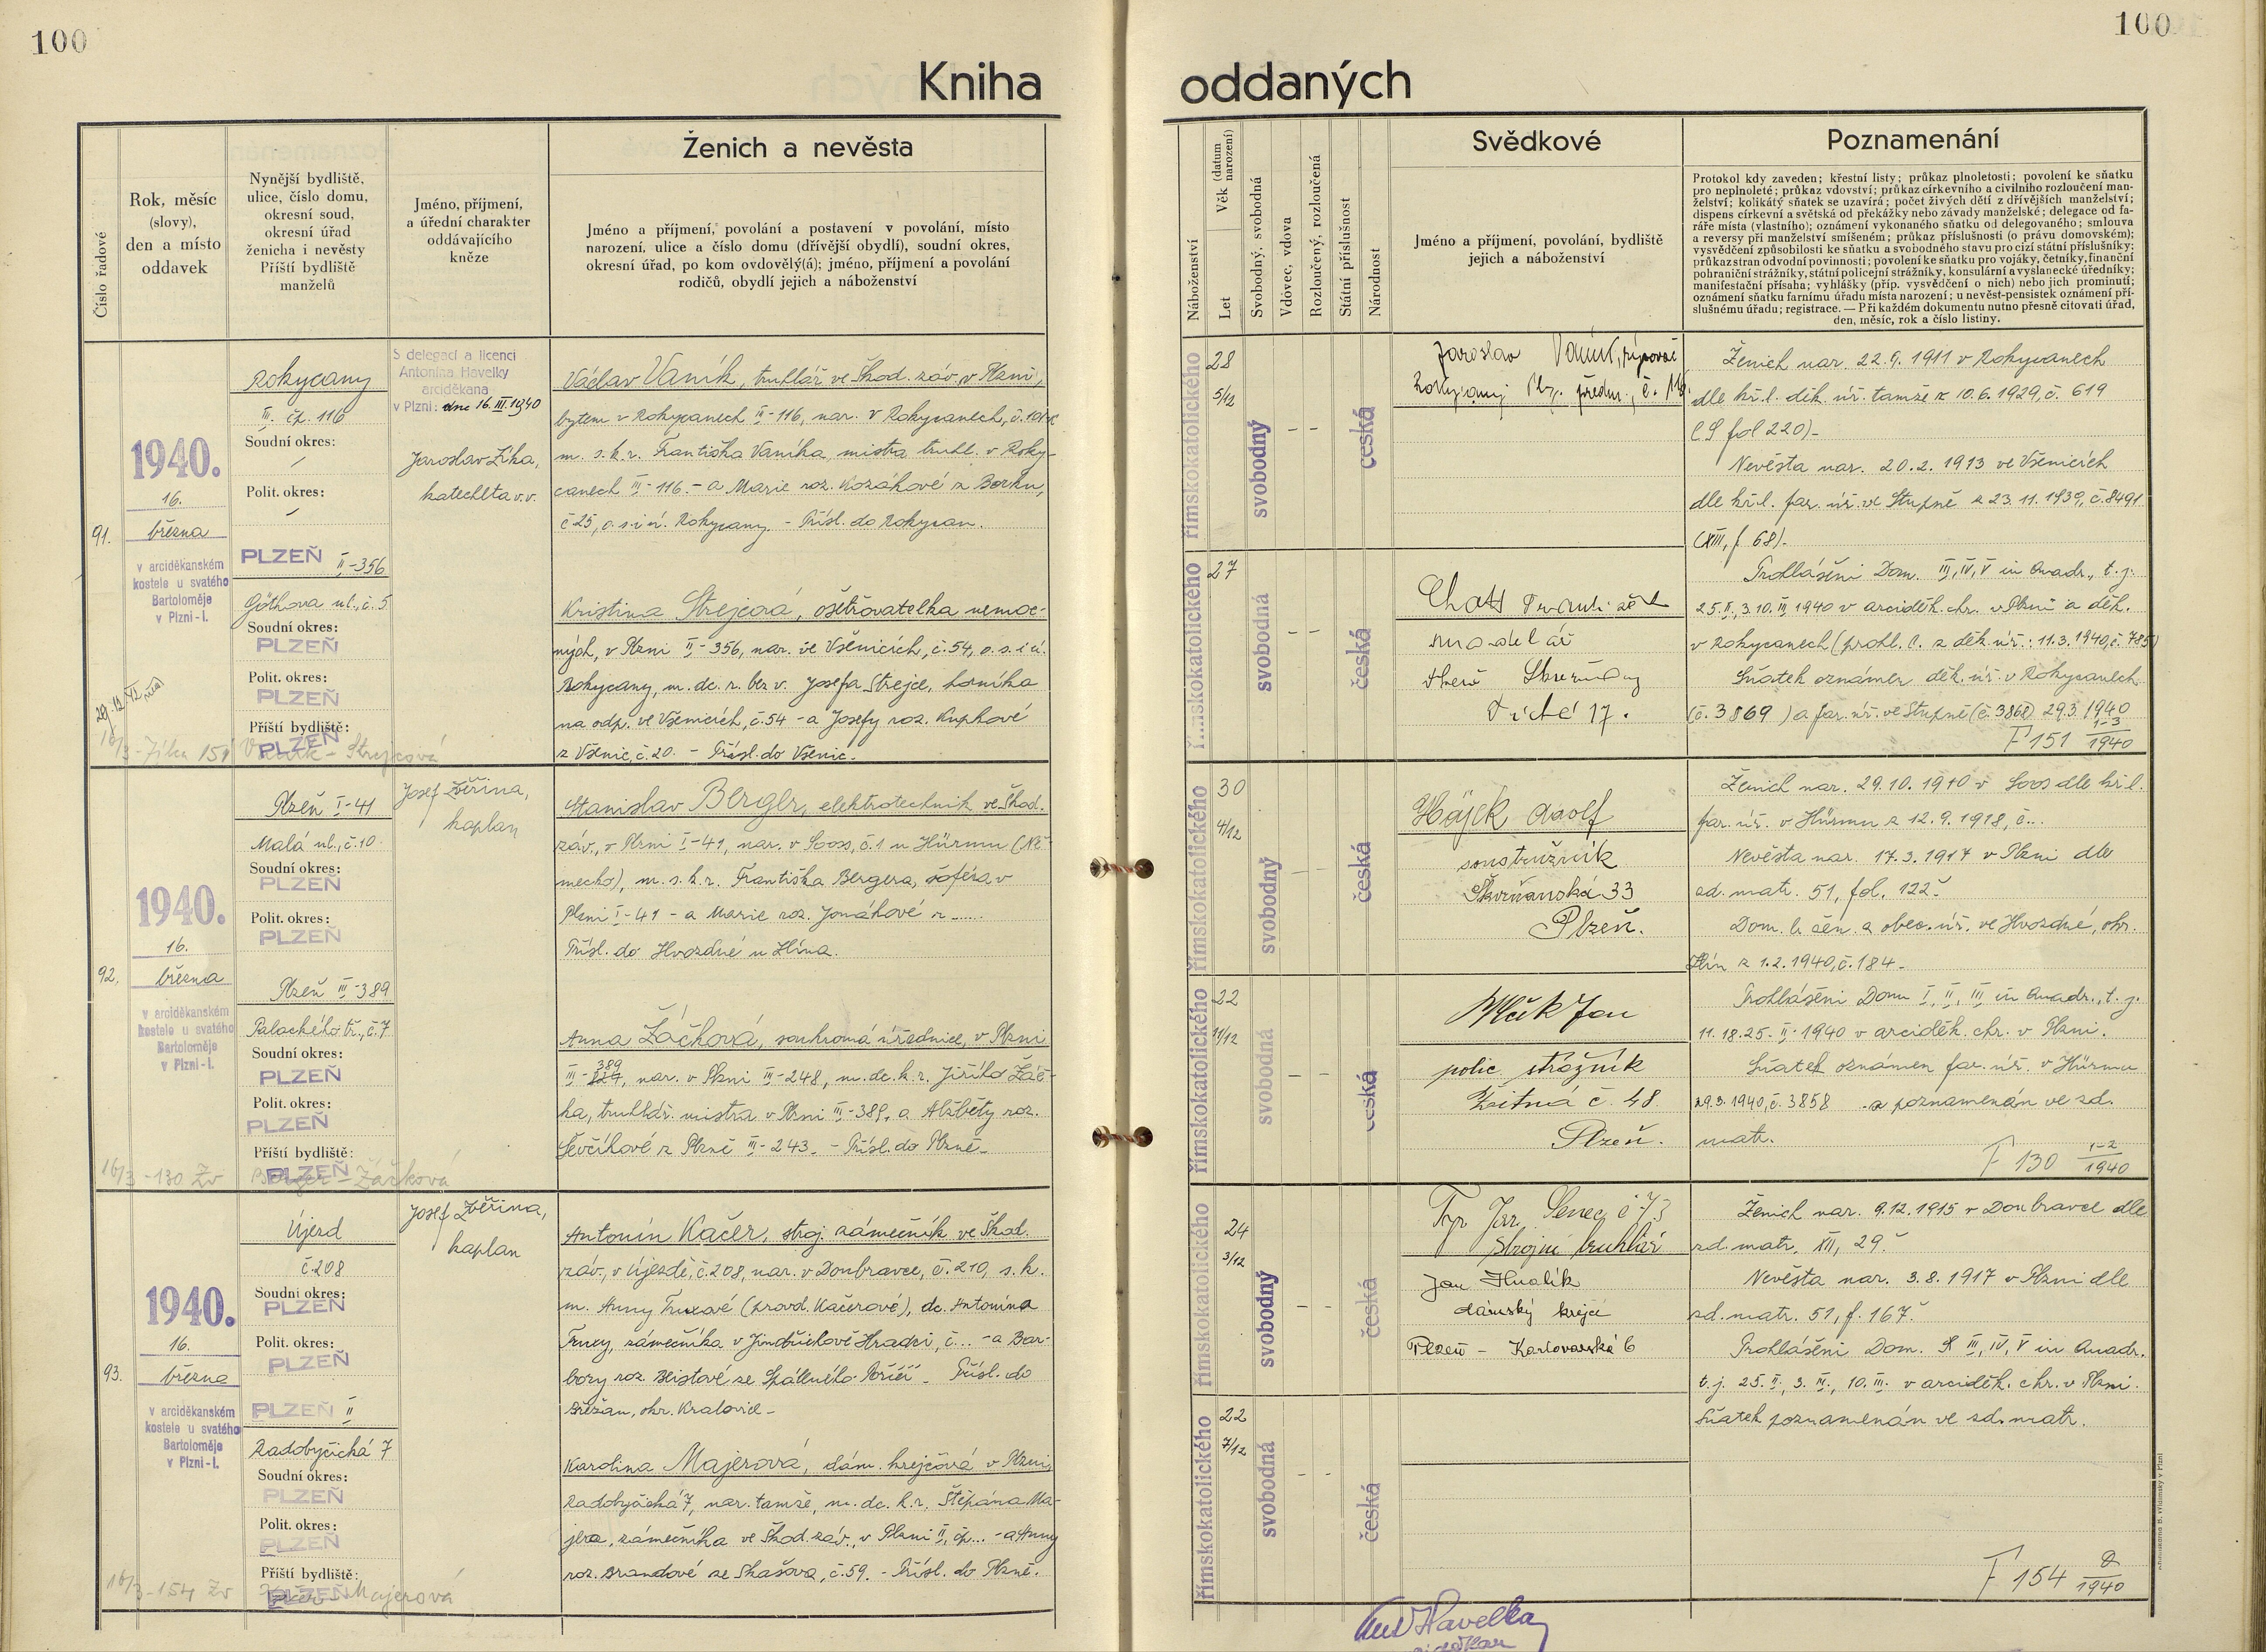 100
100
Kniha
oddaných
Číslo řadové
Rok, měsíc
(slovy),
den a místo
oddavek
Nynější bydliště,
ulice, číslo domu,
okresní soud,
okresní úřad
ženicha i nevěsty
Příští bydliště
manželů
Jméno, příjmení,
a úřední charakter
oddávajícího
kněze
Ženich a nevěsta
Jméno a příjmení, povolání a postavení v povolání, místo
narození, ulice a číslo domu (dřívější obydlí), soudní okres,
okresní úřad, po kom ovdovělý(á); jméno, příjmení a povolání
rodičů, obydlí jejich a náboženství
Náboženství
Věk (datum narození)
Let
Svobodný, svobodná
Vdovec, vdova
Rozloučený, rozloučená
Státní příslušnost
Národnost
Svědkové
Jméno a příjmení, povolání, bydliště
jejich a náboženství
Poznamenání
Protokol kdy zaveden; křestní listy; průkaz plnoletosti; povolení ke sňatku
pro neplnoleté; průkaz vdovství; průkaz církevního a civilního rozloučení man-
želství; kolikátý sňatek se uzavírá; počet živých dětí z dřívějších manželství;
dispens církevní a světská od překážky nebo závady manželské; delegace od fa-
ráře místa (vlastního); oznámení vykonaného sňatku od delegovaného; smlouva
a reversy při manželství smíšeném; průkaz příslušnosti (o právu domovském);
vysvědčení způsobilosti ke sňatku a svobodného stavu pro cizí státní příslušníky;
průkaz stran odvodní povinnosti; povolení ke sňatku pro vojáky, četníky, finanční
pohraniční strážníky, státní policejní strážníky, konsulární a vyslanecké úředníky;
manifestační přísaha; vyhlášky (příp. vysvědčení o nich) nebo jich prominutí;
oznámení sňatku farnímu úřadu místa narození; u nevěst-pensistek oznámení pří-
slušnému úřadu; registrace. — Při každém dokumentu nutno přesně citovati úřad,
den, měsíc, rok a číslo listiny.
91.
1940.
16.
března
v arciděkanském
kostele u svatého
Bartoloměje
v Plzni-I.
Rokycany
III. čp. 116
Soudní okres:
Polit. okres:
PLZEŇ II-356
Göthova ul., č. 5
Soudní okres:
PLZEŇ
Polit. okres:
PLZEŇ
Příští bydliště:
PLZEŇ
S delegací a licencí
Antonína Havelky
arciděkana
v Plzni: dne 16. III. 1940
Jaroslav Žíka,
katecheta v.v.
Václav Vaník, truhlář ve Škod. záv. v Plzni,
bytem v Rokycanech III-116, nar. v Rokycanech,
m. s. k. r. Františka Vaníka, mistra truhl. v Roky-
canech III-116. - a Marie roz. Kozákové z Borku,
č 25, o. s. i ú. Rokycany. - Přísl. do Rokycan.
Kristina Strejcová, ošetřovatelka nemoc-
ných, v Plzni II-356, nar. ve Všenicích, č. 54, o. s. i ú.
Rokycany, m. dc. r. bez v. Josefa Strejce, horníka
na odp. ve Všenicích, č. 54 - a Josefy roz. Kupkové
z Všenic, č. 20. - Přísl. do Všenic.
římskokatolického
28
5/12
svobodný
- -
česká
římskokatolického
27
svobodná
- -
česká
Jaroslav Vaník,
modelář
17.
Ženich nar. 22. 9. 1911 v Rokycanech
dle kř. l. děk. úř. tamže z 10. 6. 1929, č. 619
fol 220).
Nevěsta nar. 20. 2. 1913 ve Všenicích
dle kř. l. far. úř. ve Stupně z 23. 11. 1939, č. 8491
(XIII, f. 68).
Prohlášeni Dom. III, IV, V in Quadr., t. j.
25. II., 3. 10. III. 1940 v arciděk. chr. v Plzni a děk.
v Rokycanech (prohl. l. z děk. úř.: 11. 3. 1940, č.
Sňatek oznámen děk. úř. v Rokycanech
(č. 3869) a far. úř. ve Stupně (č. 3868) 29. 3. 1940
F 151 1-3/1940
16/3 - Žíka 151 Vaník - Strejcová
92.
1940.
16.
března
v arciděkanském
kostele u svatého
Bartoloměje
v Plzni-I.
Plzeň I-41
Malá ul., č. 10
Soudní okres:
PLZEŇ
Polit. okres:
PLZEŇ
Plzeň III-389
Palackého tř., č. 7
Soudní okres:
PLZEŇ
Polit. okres:
PLZEŇ
Příští bydliště:
PLZEŇ
Josef Zvěřina,
kaplan
Stanislav Berger, elektrotechnik ve Škod.
záv., v Plzni I-41, nar. v Sooss, č. 1 u Hürmu (Ně-
mecko), m. s. k. r. Františka Bergera, šoféra v
Plzni I-41 - a Marie roz. Jonákové z .....
Přísl. do Hvozdné u Zlína.
Anna Žáčková, soukromá úřednice, v Plzni
III-389, nar. v Plzni III-248, m. dc. k. r. Jiřího Žáč-
ka, truhlář. mistra v Plzni III-389, a Alžběty roz.
Ševčíkové z Plzně III-243. - Přísl. do Plzně.
římskokatolického
30
4/12
svobodný
- -
česká
římskokatolického
22
11/12
svobodná
- -
česká
Hájek Adolf
soustružník
Skvrňanská 33
Plzeň.
Jan
polic. strážník
Žitná č. 48
Plzeň.
Ženich nar. 29. 10. 1910 v Soos dle kř. l.
far. úř. v Hürmu z 12. 9. 1918, č...
Nevěsta nar. 17. 3. 1917 v Plzni dle
zd. matr. 51, fol. 122.
Dom. l. čen. z obec. úř. ve Hvozdné, okr.
Zlín z 1. 2. 1940, č. 184.
Prohlášeni Dom. I, II, III in Quadr., t. j.
11. 18. 25. II. 1940 v arciděk. chr. v Plzni.
Sňatek oznámen far. úř. v Hürmu
29. 3. 1940, č. 3858 - a poznamenán ve zd.
matr.
F 130 1-2/1940
16/3 - 130 Zv Berger - Žáčková
93.
1940.
16.
března
v arciděkanském
kostele u svatého
Bartoloměje
v Plzni-I.
Újezd
č. 208
Soudní okres:
PLZEŇ
Polit. okres:
PLZEŇ
PLZEŇ II
Radobyčická 7
Soudní okres:
PLZEŇ
Polit. okres:
PLZEŇ
Příští bydliště:
PLZEŇ
Josef Zvěřina,
kaplan
Antonín Kačer, stroj. zámečník ve Škod.
záv., v Újezdě, č. 208, nar. v Doubravce, č. 210, s. k.
m. Anny Truxové (provd. Kačerové), dc. Antonína
Truxy, zámečníka v Jindřichově Hradci, č... - a Bar-
bory roz. Beistové ze Spáleného Poříčí. Přísl. do
Břežan, okr. Kralovice -
Karolina Majerová, dám. krejčová v Plzni,
Radobyčická 7, nar. tamže, m. dc. k. r. Štěpána Ma-
jera, zámečníka ve Škod. záv., v Plzni II, čp... - a Anny
roz. Brandové ze Skašova, č. 59. - Přísl. do Plzně.
římskokatolického
24
3/12
svobodný
- -
česká
římskokatolického
22
7/12
svobodná
- -
česká
Jar. Senec č 73
strojní truhlář
Jan Hnalík
dámský krejčí
Plzeň - Karlovarská 6
Ženich nar. 9. 12. 1915 v Doubravce dle
zd. matr. XII, 29.
Nevěsta nar. 3. 8. 1917 v Plzni dle
zd. matr. 51, f. 167.
Prohlášeni Dom. III, IV, V in Quadr.
t. j. 25. II., 3. III., 10. III. v arciděk. chr. v Plzni.
Sňatek poznamenán ve zd. matr.
F 154 2/1940
16/3 - 154 Zv Kačer - Majerová
Ant Havelka